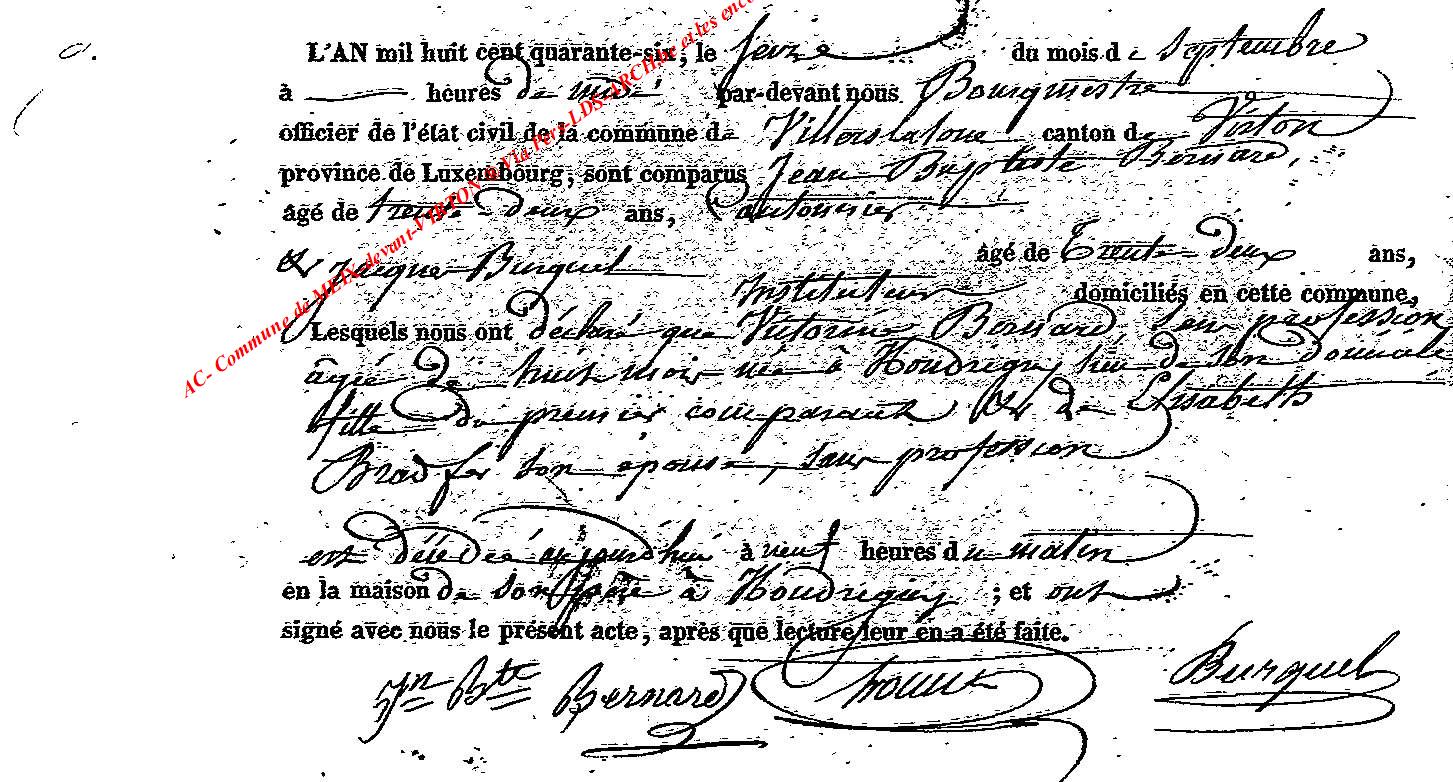 L'AN mil huit cent quarante-six, le seize du mois de septembre
à heures de midi par-devant nous Bourgmestre
officier de l'état civil de la commune de Villerslaloue canton de Virton
province de Luxembourg, sont comparus Jean Baptiste Bernard,
âgé de trente-deux ans, Cantonnier
& Jacques Burquel âgé de Trente-deux ans,
Instituteur domiciliés en cette commune,
Lesquels nous ont déclaré que Victorine Bernard, sans profession
âgée de huit mois née à Houdrigny, lieu de son domicile
fille du premier comparant & de Elisabeth
Bradfer son épouse, sans profession
est décédée aujourd'hui à neuf heures du matin
en la maison de son père à Houdrigny ; et ont
signé avec nous le présent acte, après que lecture leur en a été faite.
Jn Bte Bernard Burquel
AC- Commune de MEIX-devant-VIRTON